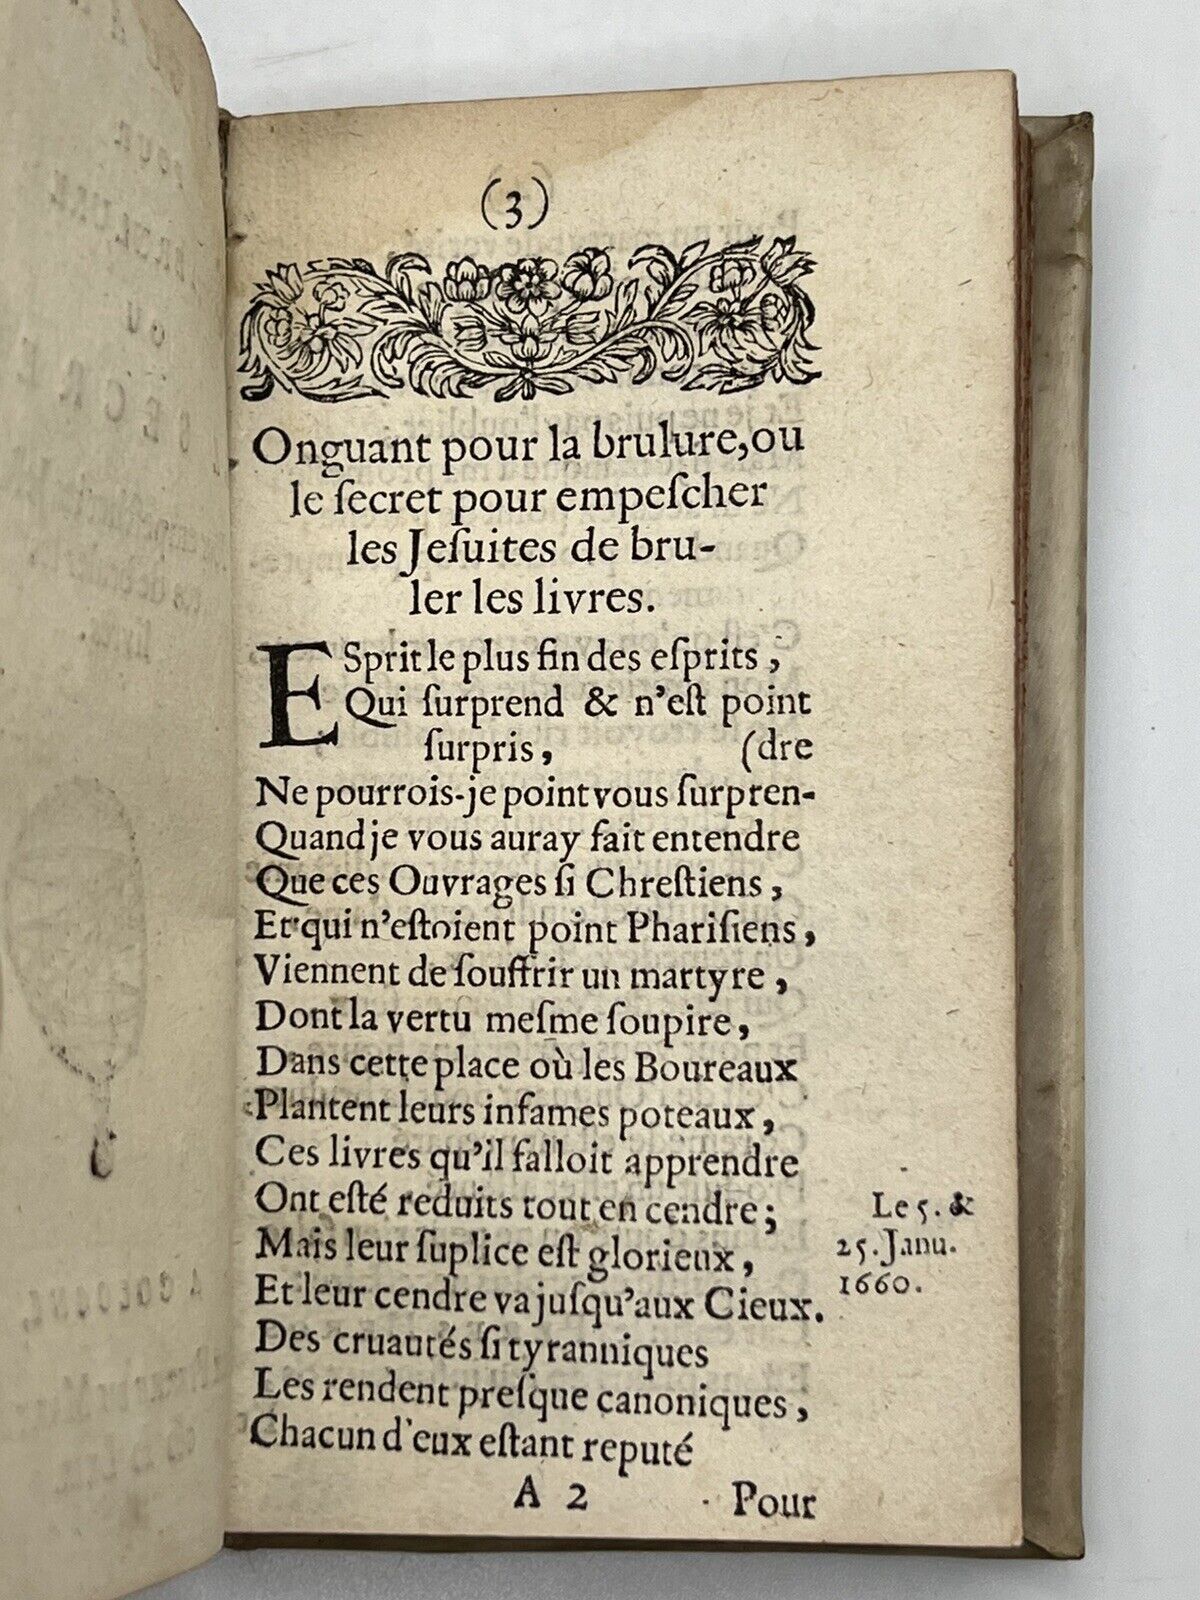 (3)
Onguant pour la brulure, ou
le ſecret pour empeſcher
les Jeſuites de bru-
ler les livres.
ESprit le plus fin des eſprits,
Qui ſurprend & n'eſt point
ſurpris, (dre
Ne pourrois-je point vous ſurpren-
Quand je vous auray fait entendre
Que ces Ouvrages ſi Chreſtiens,
Et qui n'eſtoient point Phariſiens,
Viennent de ſouffrir un martyre,
Dont la vertu meſme ſoupire,
Dans cette place où les Boureaux
Plantent leurs infames poteaux,
Ces livres qu'il falloit apprendre
Ont eſté reduits tout en cendre;
Mais leur ſuplice eſt glorieux,
Et leur cendre va juſqu'aux Cieux.
Des cruautés ſi tyranniques
Les rendent preſque canoniques,
Chacun d'eux eſtant reputé
Le 5. &
25. Janu.
1660.
A 2 Pour
A COLOGNE,